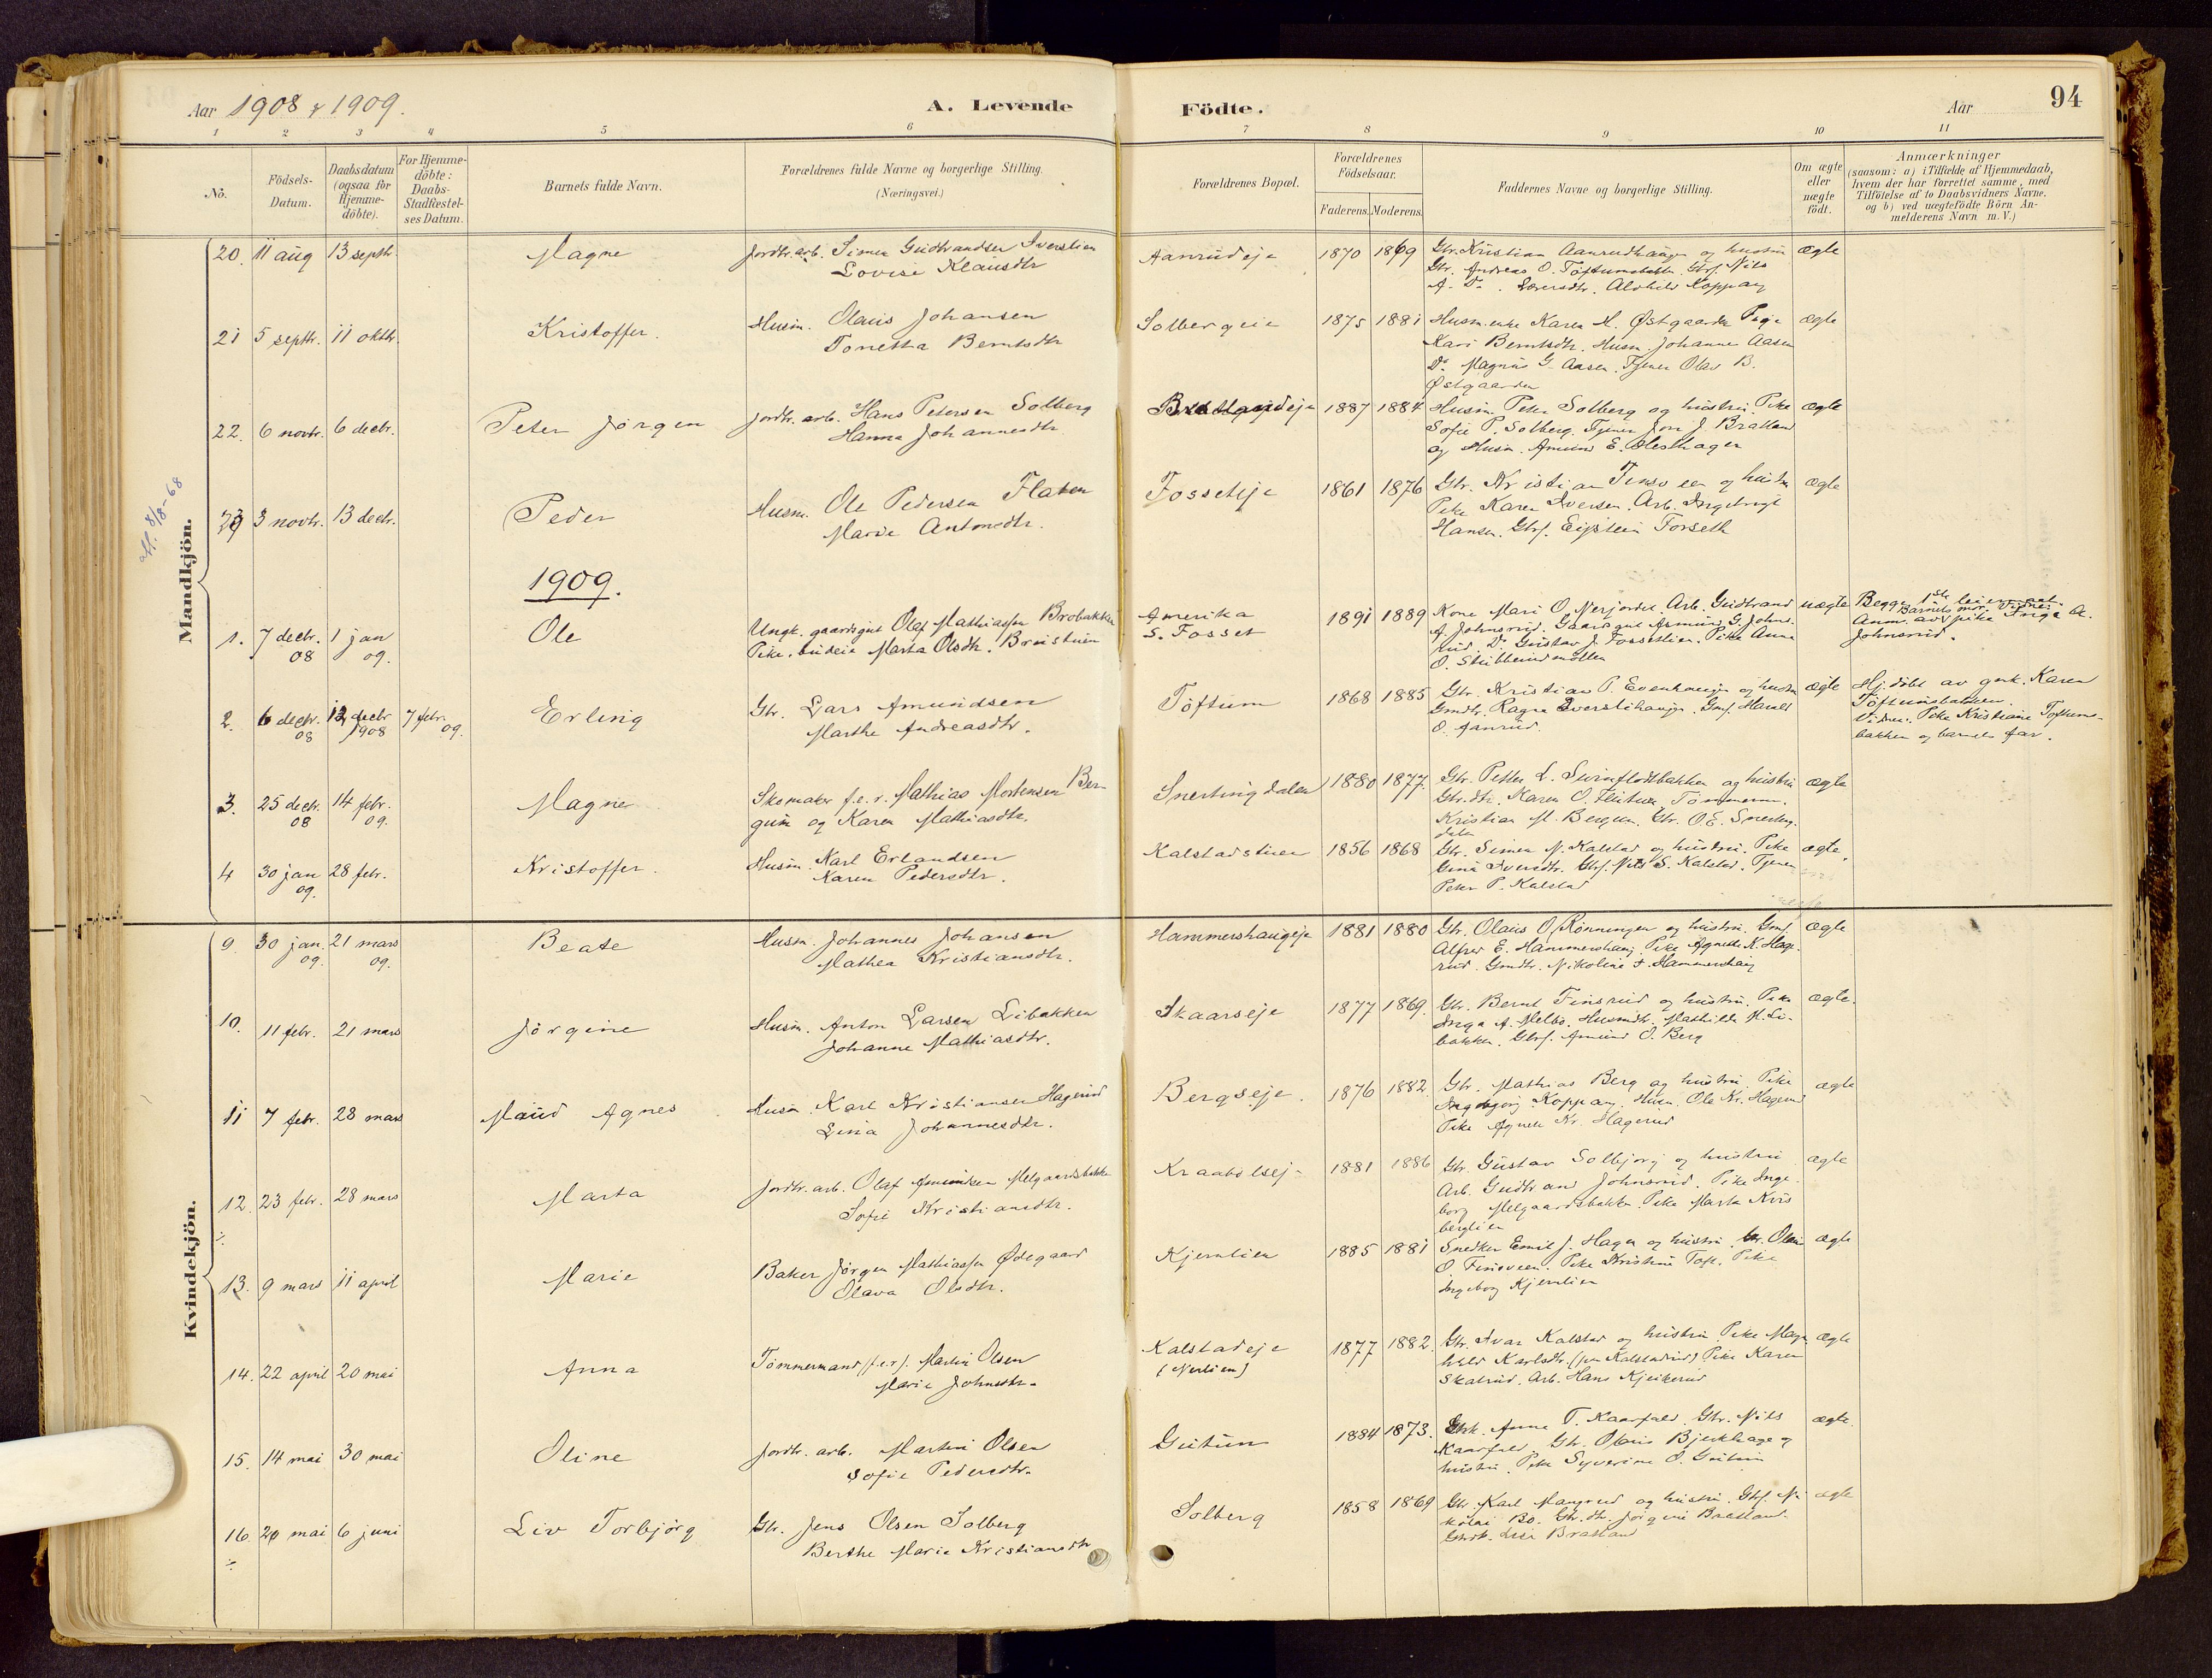 Aar 1908 & 1909.
A. Levende Födte.
Aar
94
1 2 3 4 5 6 7 8 9 10 11
Nö.
Födsels-Datum.
Daabsdatum (ogsaa for Hjemme-döbte).
For Hjemme-döbte: Daabs-Stadfæstel-ses Datum.
Barnets fulde Navn.
Forældrenes fulde Navne og borgerlige Stilling.
(Næringsvei.)
Forældrenes Bopæl.
Forældrenes Födselsaar.
Faderens. Moderens.
Faddernes Navne og borgerlige Stilling.
Om ægte eller uægte födt.
Anmærkninger
(saasom: a) i Tilfælde af Hjemmedaab, hvem der har forrettet samme, med Tilföielse af to Daabsvidners Navne, og b) ved uægtefödte Börn An-melderens Navn m. V.)
Mandkjön.
20. 11 aug 13 septbr. Magne Jordbr. arb. Simen Gudbrandsen Iverslien
Lovise Klausdtr
Aanrudeje 1870 1869 Gbr. Kristian Aanrudhaugen og hustru ægte
Gbr. Andreas O. Toftumsbakk. Gbrs. Nils
Alvhild Koppang
21 5 septbr. 11 oktbr. Kristoffer. Husm. Olaus Johansen
Tonetta Berntsdtr
Solbergeie 1875 1881 Husm.enke Karen M. Østgaarden Pige ægte
Kari Berntsdtr. Husm. Johannes Aasen
Do Magnus G. Aasen. Tjener Olav B.
Østgaarden
22. 6 novbr. 6 decbr. Peter Jørgen Jordbr. arb. Hans Petersen Solberg
Hanna Johannesdtr
Bratlandeje 1887 1884 Husm. Peter Solberg og hustru. Pike ægte
Sofie P. Solberg. Tjener Jon J. Bratland
og Husm. Amund E. Hesthagen
H. 8/8-68
23 3 novbr. 13 decbr. Peder Husm. Ole Pedersen Flaten
Marie Antonsdtr.
Fosseteje 1861 1876 Gbr. Kristian Finsveen og hustru ægte
Pike Karen Iversen. Arb. Ingebrigt
Hansen. Gbrs. Eistein Forseth
1909.
1. 7 decbr. 08 1 jan 09. Ole Ungk. gaardsgut Olaf Mathiassen Brobakken
Pike. budeie Marta Olsdtr. Breistuen
Amerika
S. Fosset
1891 1889 Kone Mari O. Nerjordet. Arb. Gudbrand uægte
A. Johnsrud. Gaardgut Asmund G. Johns-
rud. Do Gustav J. Fossetlien. Pike Anna
O. Stubberudmollen
Begges 1ste leiermaal.
Barnets mor. Vidner
Anm. av pike Inga A.
Johnsrud.
2. 6 decbr. 08 13 decbr 1908 7 febr. 09. Erling Gbr. Lars Amundsen
Marthe Andreasdtr.
Töftum 1868 1885 Gbr. Kristian P. Evenhaugen og hustru ægte
Gmdtr. Ragna Iverslihaugen. Gms. Harald
O. Aanrud.
Hj.döbt av gmk. Karen
Töftumsbakken.
Vidner. Pike Kristiane Toftums-
bakken og barnets far.
3. 25 decbr. 08 14 febr. 09. Magne Skomaker f.e.r. Mathias Mortensen Ber-
gum og Karen Mathiasdtr.
Snertingdalen 1880 1877. Gbr. Petter L. Svinflodtbakken og hustru ægte
Gbr.dtr. Karen O. Fliituen. Tømmerm.
Kristian M. Bergum. Gbr. O.E. Snerting-
dalen
4 30 jan 09. 28 febr. Kristoffer. Husm. Karl Erlandsen
Karen Pedersdtr.
Kalstadstuen 1856 1868 Gbr. Simen N. Kalstad og hustru. Pike ægte.
Gina Iversdtr. Gbrs. Nils S. Kalstad. Tjener
Peter P. Kalstad
Kvindekjön.
9. 30 jan. 09. 21 mars 09. Beate Husm. Johannes Johansen
Mathea Kristiansdtr.
Hammershaugeje 1881 1880 Gbr. Olaus O. Rønningen og hustru. Gms. ægte
Alfred E. Hammershaug. Pike Agnethe K. Hage-
rud. Gmdtr. Nikoline A. Hammershaug
10. 11 febr. 21 mars Jörgine Husm. Anton Larsen Libakken
Johanne Mathiasdtr.
Skaarseje 1877 1869. Gbr. Bernt Finsrud og hustru. Pike ægte.
Inga A. Melbö. Husmdtr. Mathilde H. Li-
bakken. Gbrs. Amund O. Berg
11 7 febr. 28 mars Maud Agnes Husm. Karl Kristiansen Hagerud
Lina Johannesdtr.
Bergseje. 1876 1882 Gbr. Mathias Berg og hustru. Pike ægte
Ingebjørg Koppang. Husm. Ole Kr. Hagerud
Pike Agnethe Kr. Hagerud
12. 23 febr. 28 mars Marta Jordbr. arb. Olaf Amundsen Melgaardsbakken
Sofie Kristiansdtr.
Kraabölseje 1881 1886 Gbr. Gustav Solbjorg og hustru ægte
Arb. Gudbrand Johnsrud. Pike Inge-
borg Melgaardsbakken. Pike Marta Kris
berglien
13. 9 mars 11 april Marie Baker Jörgen Mathiassen Ødegaard
Olava Olsdtr.
Kjernlien 1885 1881 Snedker Emil J. Hagen og hustru. Gbr. Olaus ægte
O. Finsveen. Pike Kristine Toft. Pike
Ingeborg Kjernlien
14. 22 april 20 mai Anna Tömmermand (f.e.r). Martin Olsen
Marie Johnsdtr.
Kalstadeje
(Nerlien)
1877 1882. Gbr. Ivar Kalstad og hustru. Pike Magn- ægte
hild Karlsdtr. (fra Kalstadrud) Pike Karen
Skalrud. Arb. Hans Kjeikerud
15. 14 mai 30 mai Oline Jordbr. arb. Martin Olsen
Sofie Pedersdtr.
Gutum 1884 1873. Gbrk. Anne T. Kaarfald. Gbr. Nils ægte.
Kaarfald. Gbr. Olaus Bjerkhage og
hustru. Pike Syverine O. Gutum
16. 20 mai 6 juni Liv Torbjörg Gbr. Jens Olsen Solberg
Berthe Marie Kristiansdtr
Solberg 1858 1869 Gbr. Karl Mangrud og hustru. Gbrs. Ni- ægte
kolai Bø. Gbr.dtr. Jørgine Bratland.
Gbrdt. Lisa Bratland